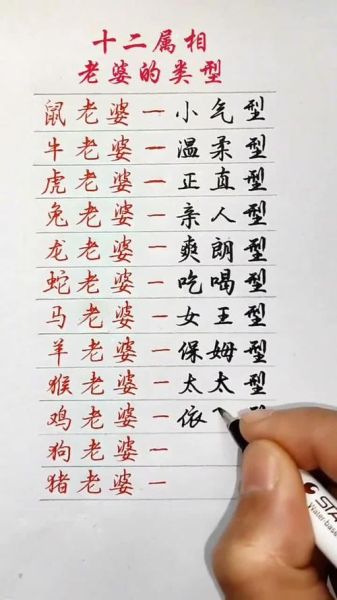 十二属相
老婆的类型
鼠老婆一小气型
牛老婆一温柔型
虎老婆一正直型
兔老婆一亲人型
龙老婆一爽朗型
蛇老婆一吃喝型
马老婆一女王型
羊老婆一保姆型
猴老婆一太太型
鸡老婆一依
狗老婆一
猪老婆一
STA
Waterbas